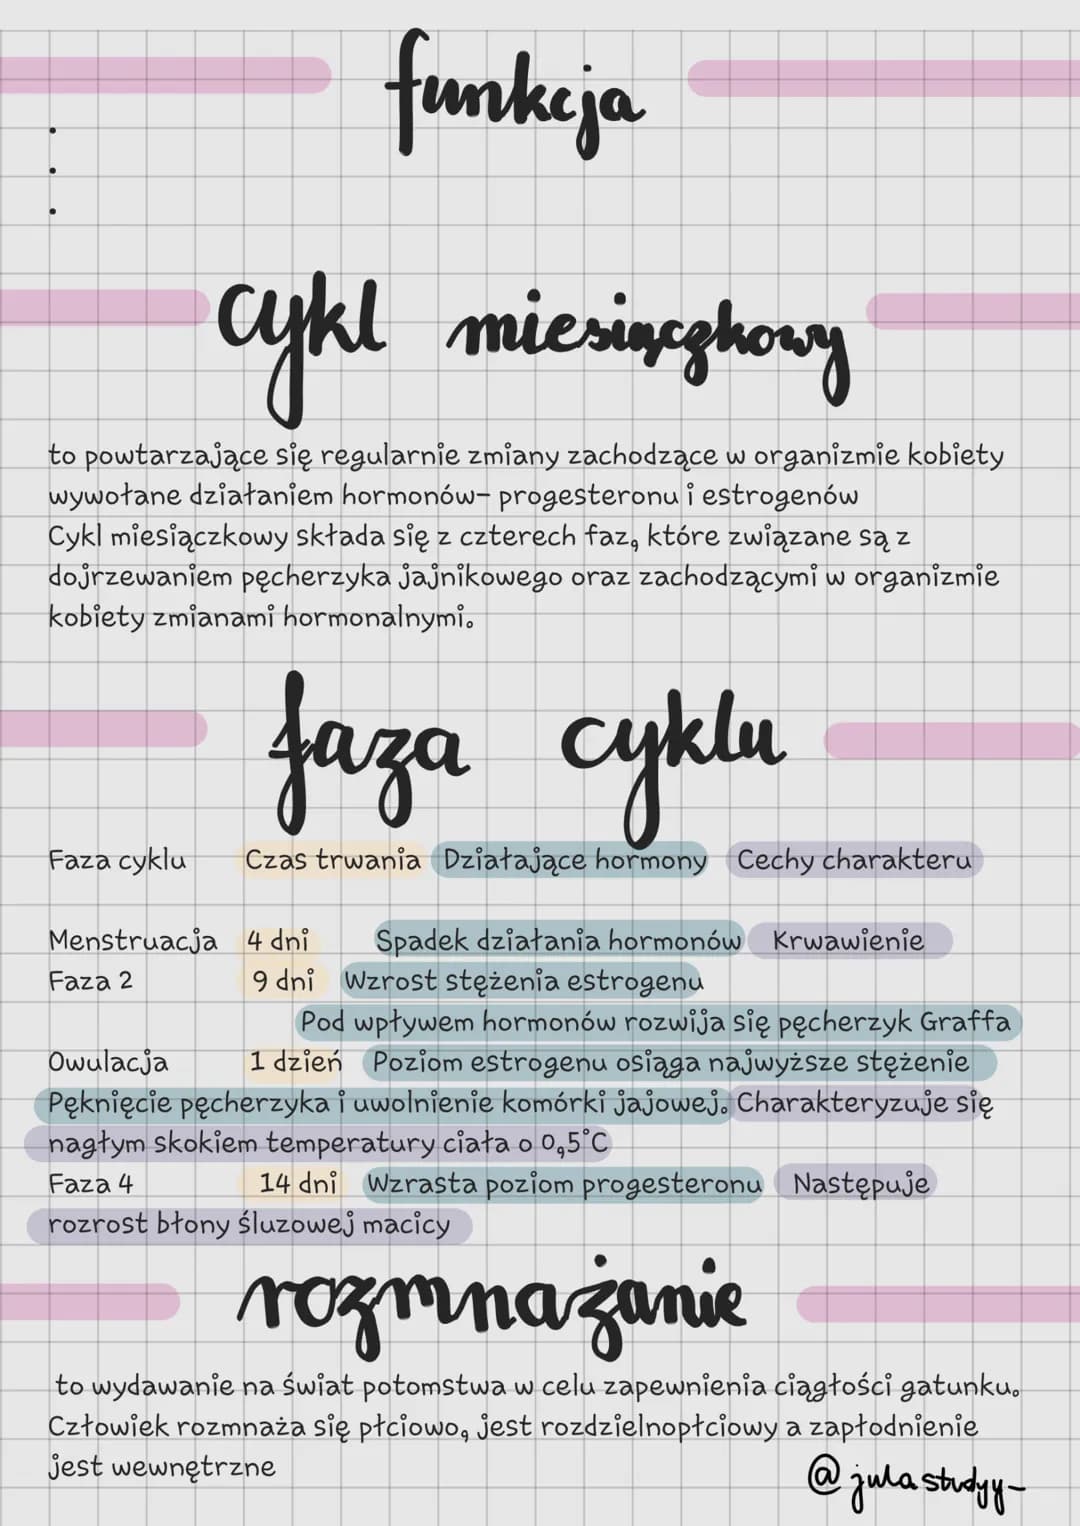 funkcja
•
•
•
cykl miesiączkowy
to powtarzające się regularnie zmiany zachodzące w organizmie kobiety
wywołane działaniem hormonów- progesteronu i estrogenów
Cykl miesiączkowy składa się z czterech faz, które związane są z
dojrzewaniem pęcherzyka jajnikowego oraz zachodzącymi w organizmie
kobiety zmianami hormonalnymi.
faza cyklu
Faza cyklu Czas trwania Działające hormony Cechy charakteru
Menstruacja 4 dni Spadek działania hormonów Krwawienie
Faza 2 9 dni Wzrost stężenia estrogenu
Pod wpływem hormonów rozwija się pęcherzyk Graffa
Owulacja 1 dzień Poziom estrogenu osiąga najwyższe stężenie
Pęknięcie pęcherzyka i uwolnienie komórki jajowej. Charakteryzuje się
nagłym skokiem temperatury ciała o 0,5°C
Faza 4 14 dni Wzrasta poziom progesteronu Następuje
rozrost błony śluzowej macicy
rozmnażanie
to wydawanie na świat potomstwa w celu zapewnienia ciągłości gatunku.
Człowiek rozmnaża się płciowo, jest rozdzielnopłciowy a zapłodnienie
jest wewnętrzne
@julastudyy_